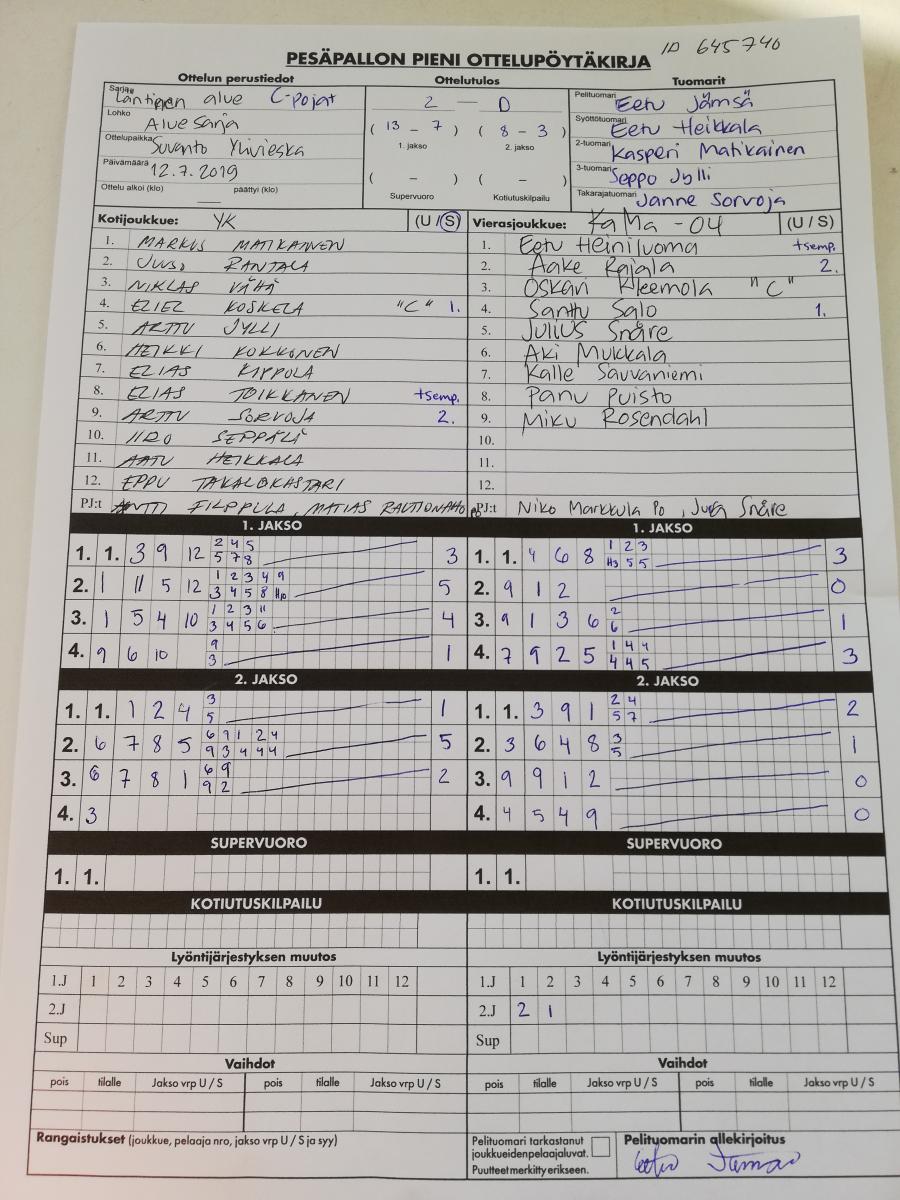 ID 645740
PESÄPALLON PIENI OTTELUPÖYTÄKIRJA
Ottelun perustiedot Ottelutulos Tuomarit
Sarja Läntinen alue C-pojat
Lohko Aluesarja
Ottelupaikka Suvanto Ylivieska
Päivämäärä 12.7.2019
Ottelu alkoi (klo) päättyi (klo)
2 — 0
( 13 - 7 ) ( 8 - 3 )
1. jakso 2. jakso
( - ) ( - )
Supervuoro Kotiutuskilpailu
Pelituomari Eetu Jämsä
Syöttötuomari Eetu Heikkala
2-tuomari Kasperi Matikainen
3-tuomari Seppo Jylli
Takarajatuomari Janne Sorvoja
Kotijoukkue: YK (U / S)
1. MARKUS MATIKAINEN
2. UUSI RANTALA
3. NIKLAS VÄHÄ
4. ELIEL KOSKELA "C" 1.
5. ARTTU JYLLI
6. HEIKKI KOKKONEN
7. ELIAS KIPPOLA
8. ELIAS TOIKKANEN +semp.
9. ARTTU SORVOJA 2.
10. IIRO SEPPÄLÄ
11. AATU HEIKKALA
12. EPPU TAKALOKASTARI
PJ:t ANTTI FILPPULA, MATIAS RAUTIONAHO
Vierasjoukkue: KaMa - 04 (U / S)
1. Eetu Heiniluoma +semp.
2. Aake Rajala 2.
3. Oskari Kleemola "C"
4. Santtu Salo 1.
5. Julius Snåre
6. Aki Mukkala
7. Kalle Sauvaniemi
8. Panu Puisto
9. Miku Rosendahl
10.
11.
12.
PJ:t Niko Markkula PO, Snåre
1. JAKSO
1. 1. 3 9 12 2 4 5 3
5 7 8
2. 1 11 5 12 1 2 3 4 9 5
3 4 5 8 Hp
3. 1 5 4 10 1 2 3 11 4
3 4 5 6
4. 9 6 10 9 1
3
1. JAKSO
1. 1. 4 6 8 1 2 3 3
H3 5 5
2. 9 1 2 0
3. 9 1 3 6 2 1
6
4. 7 9 2 5 1 4 4 3
4 4 5
2. JAKSO
1. 1. 1 2 4 3 1
5
2. 6 7 8 5 6 7 1 2 4 5
9 3 4 4 4
3. 6 7 8 1 6 9 2
9 2
4. 3
2. JAKSO
1. 1. 3 9 1 2 4 2
5 7
2. 3 6 4 8 3 1
5
3. 9 9 1 2 0
4. 4 5 4 9 0
SUPERVUORO SUPERVUORO
1. 1. 1. 1.
KOTIUTUSKILPAILU KOTIUTUSKILPAILU
Lyöntijärjestyksen muutos Lyöntijärjestyksen muutos
1.J 1 2 3 4 5 6 7 8 9 10 11 12 1.J 1 2 3 4 5 6 7 8 9 10 11 12
2.J 2.J 2 1
Sup Sup
Vaihdot Vaihdot
pois tilalle Jakso vrp U / S pois tilalle Jakso vrp U / S pois tilalle Jakso vrp U / S pois tilalle Jakso vrp U / S
Rangaistukset (joukkue, pelaaja nro, jakso vrp U / S ja syy)
Pelituomari tarkastanut
joukkueidenpelaajaluvat.
Puutteet merkitty erikseen.
Pelituomarin allekirjoitus